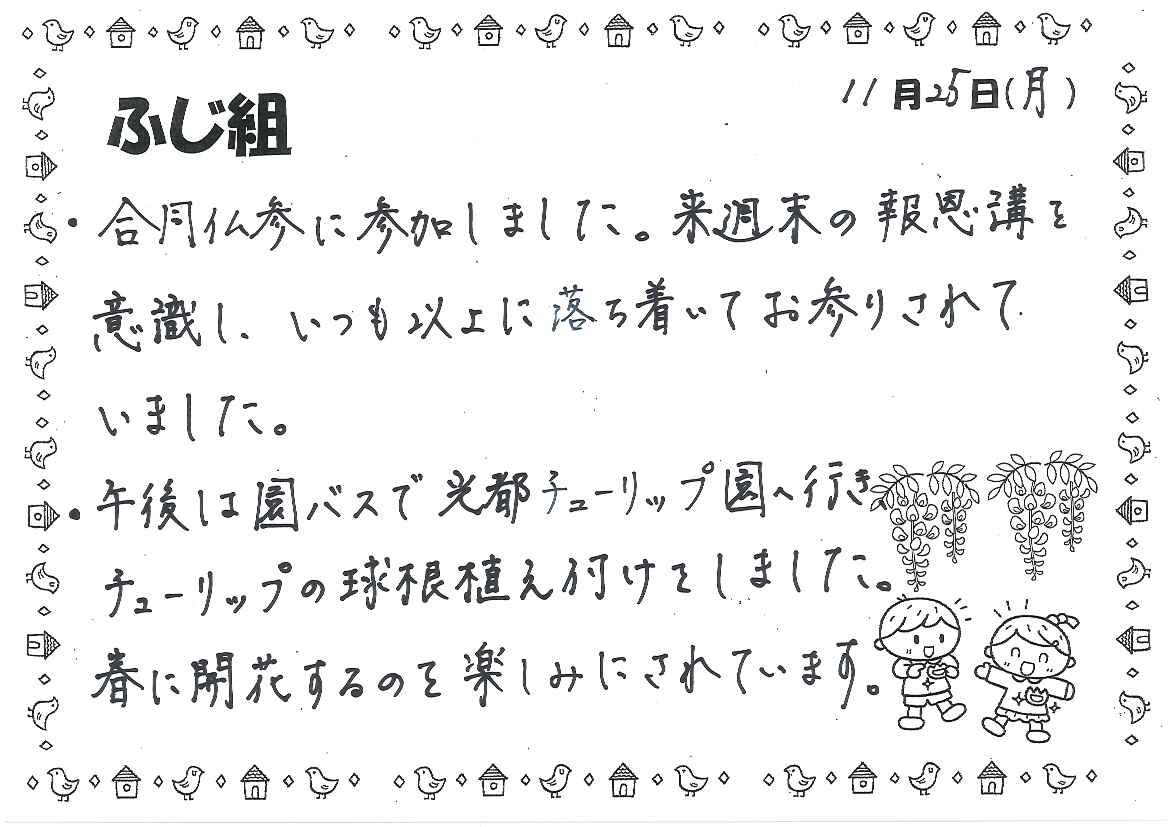 11月25日(月)
ふじ組
・合同仏参に参加しました。来週末の報恩講を
意識し、いつも以上に落ち着いてお参りされて
いました。
・午後は園バスで光都チューリップ園へ行き、
チューリップの球根植え付けをしました。
春に開花するのを楽しみにされています。